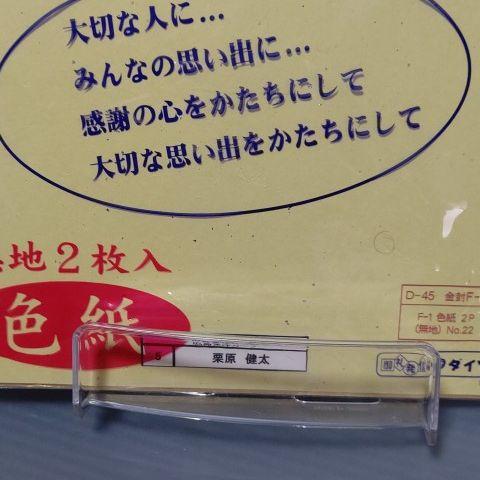 大切な人に…
みんなの思い出に…
感謝の心をかたちにして
大切な思い出をかたちにして
地2枚入
色紙
D-45 金封F-
F-1 色紙 2P
(無地) No.22
5 栗原 健太
ダイソ